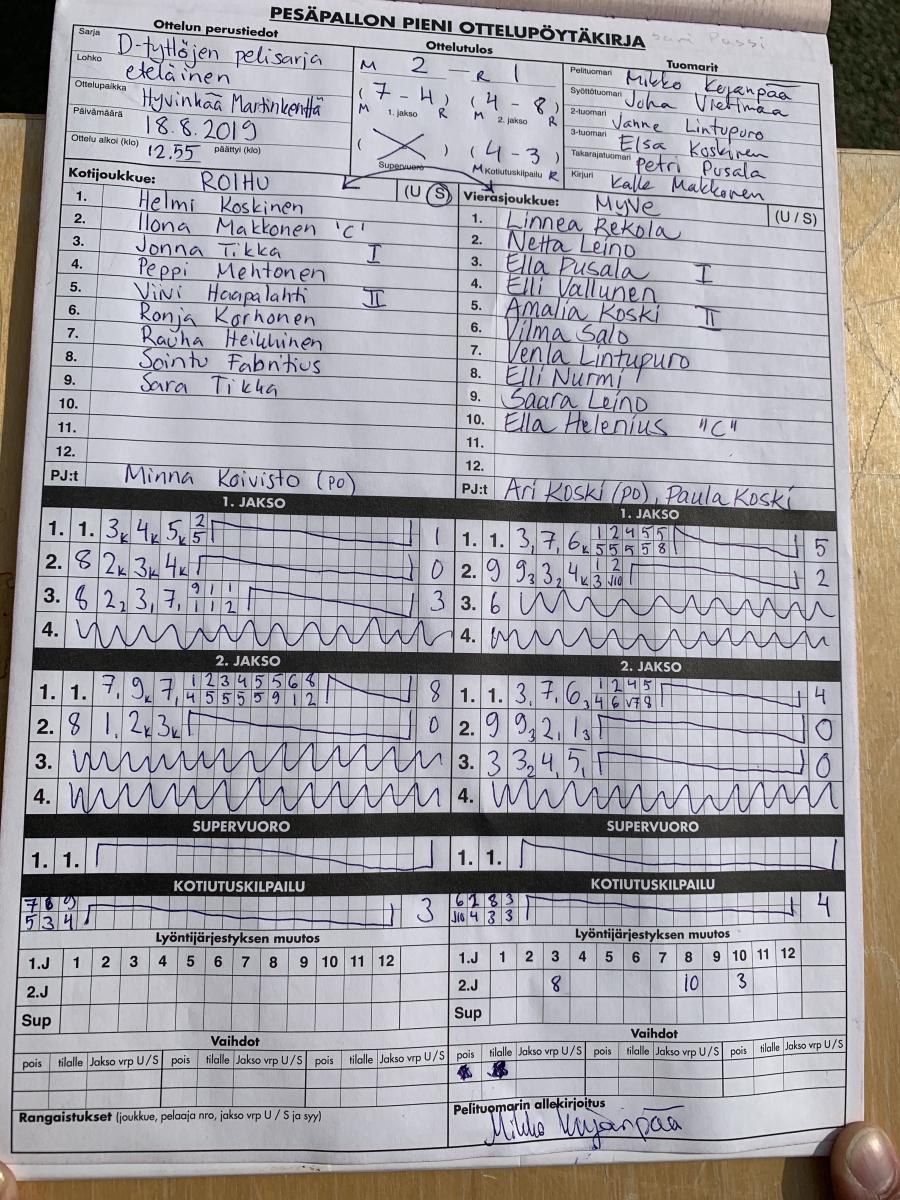 PESÄPALLON PIENI OTTELUPÖYTÄKIRJA
Ottelun perustiedot
Sarja D-tyttöjen pelisarja
Lohko eteläinen
Ottelupaikka Hyvinkää Martinkenttä
Päivämäärä 18.8.2019
Ottelu alkoi (klo) 12.55 päättyi (klo)
Ottelutulos
M 2 - R 1
(7 - 4) (4 - 8)
M 1. jakso R M 2. jakso R
( ) (4 - 3)
Supervuoro M Kotiutuskilpailu R
Tuomarit
Pelituomari Mikko Kerjanpää
Syöttötuomari Juha Vietimaa
2-tuomari Janne Lintupuro
3-tuomari Elsa Koskinen
Takarajatuomari Petri Pusala
Kirjuri Kalle Makkonen
Kotijoukkue: ROIHU (U S)
1. Helmi Koskinen
2. Ilona Makkonen 'C'
3. Jonna Tikka I
4. Peppi Mehtonen
5. Viivi Haapalahti II
6. Ronja Korhonen
7. Rauha Heikkinen
8. Sointu Fabritius
9. Sara Tikka
10.
11.
12.
PJ:t Minna Koivisto (PO)
Vierasjoukkue: MyVe (U / S)
1. Linnea Rekola
2. Netta Leino
3. Ella Pusala I
4. Elli Vallunen
5. Amalia Koski II
6. Vilma Salo
7. Venla Lintupuro
8. Elli Nurmi
9. Saara Leino
10. Ella Helenius "C"
11.
12.
PJ:t Ari Koski (PO), Paula Koski
1. JAKSO
1. 1. 3K 4K 5K 2/5 1
2. 8 2K 3K 4K 0
3. 8 22 3, 7, 9/1 1/1 1/2 3
4.
1. JAKSO
1. 1. 3, 7, 6K 1/5 2/5 4/5 5/5 5/8 5
2. 9 93 32 4K 1/3 2/√10 2
3. 6
4.
2. JAKSO
1. 1. 7, 9K 7, 1/4 2/5 3/5 4/5 5/5 5/9 6/1 8/2 8
2. 8 1, 2K 3K 0
3.
4.
2. JAKSO
1. 1. 3, 7, 63 1/4 2/6 4/√7 5/8 4
2. 9 93 2, 13 0
3. 3 32 4, 5, 0
4.
SUPERVUORO
1. 1.
SUPERVUORO
1. 1.
KOTIUTUSKILPAILU
7 8 9
5 3 4 3
KOTIUTUSKILPAILU
6 7 8 3
√10 4 3 3 4
Lyöntijärjestyksen muutos
1.J 1 2 3 4 5 6 7 8 9 10 11 12
2.J
Sup
Lyöntijärjestyksen muutos
1.J 1 2 3 4 5 6 7 8 9 10 11 12
2.J 8 10 3
Sup
Vaihdot
pois tilalle Jakso vrp U/S pois tilalle Jakso vrp U/S pois tilalle Jakso vrp U/S
Vaihdot
pois tilalle Jakso vrp U/S pois tilalle Jakso vrp U/S pois tilalle Jakso vrp U/S
Rangaistukset (joukkue, pelaaja nro, jakso vrp U / S ja syy)
Pelituomarin allekirjoitus